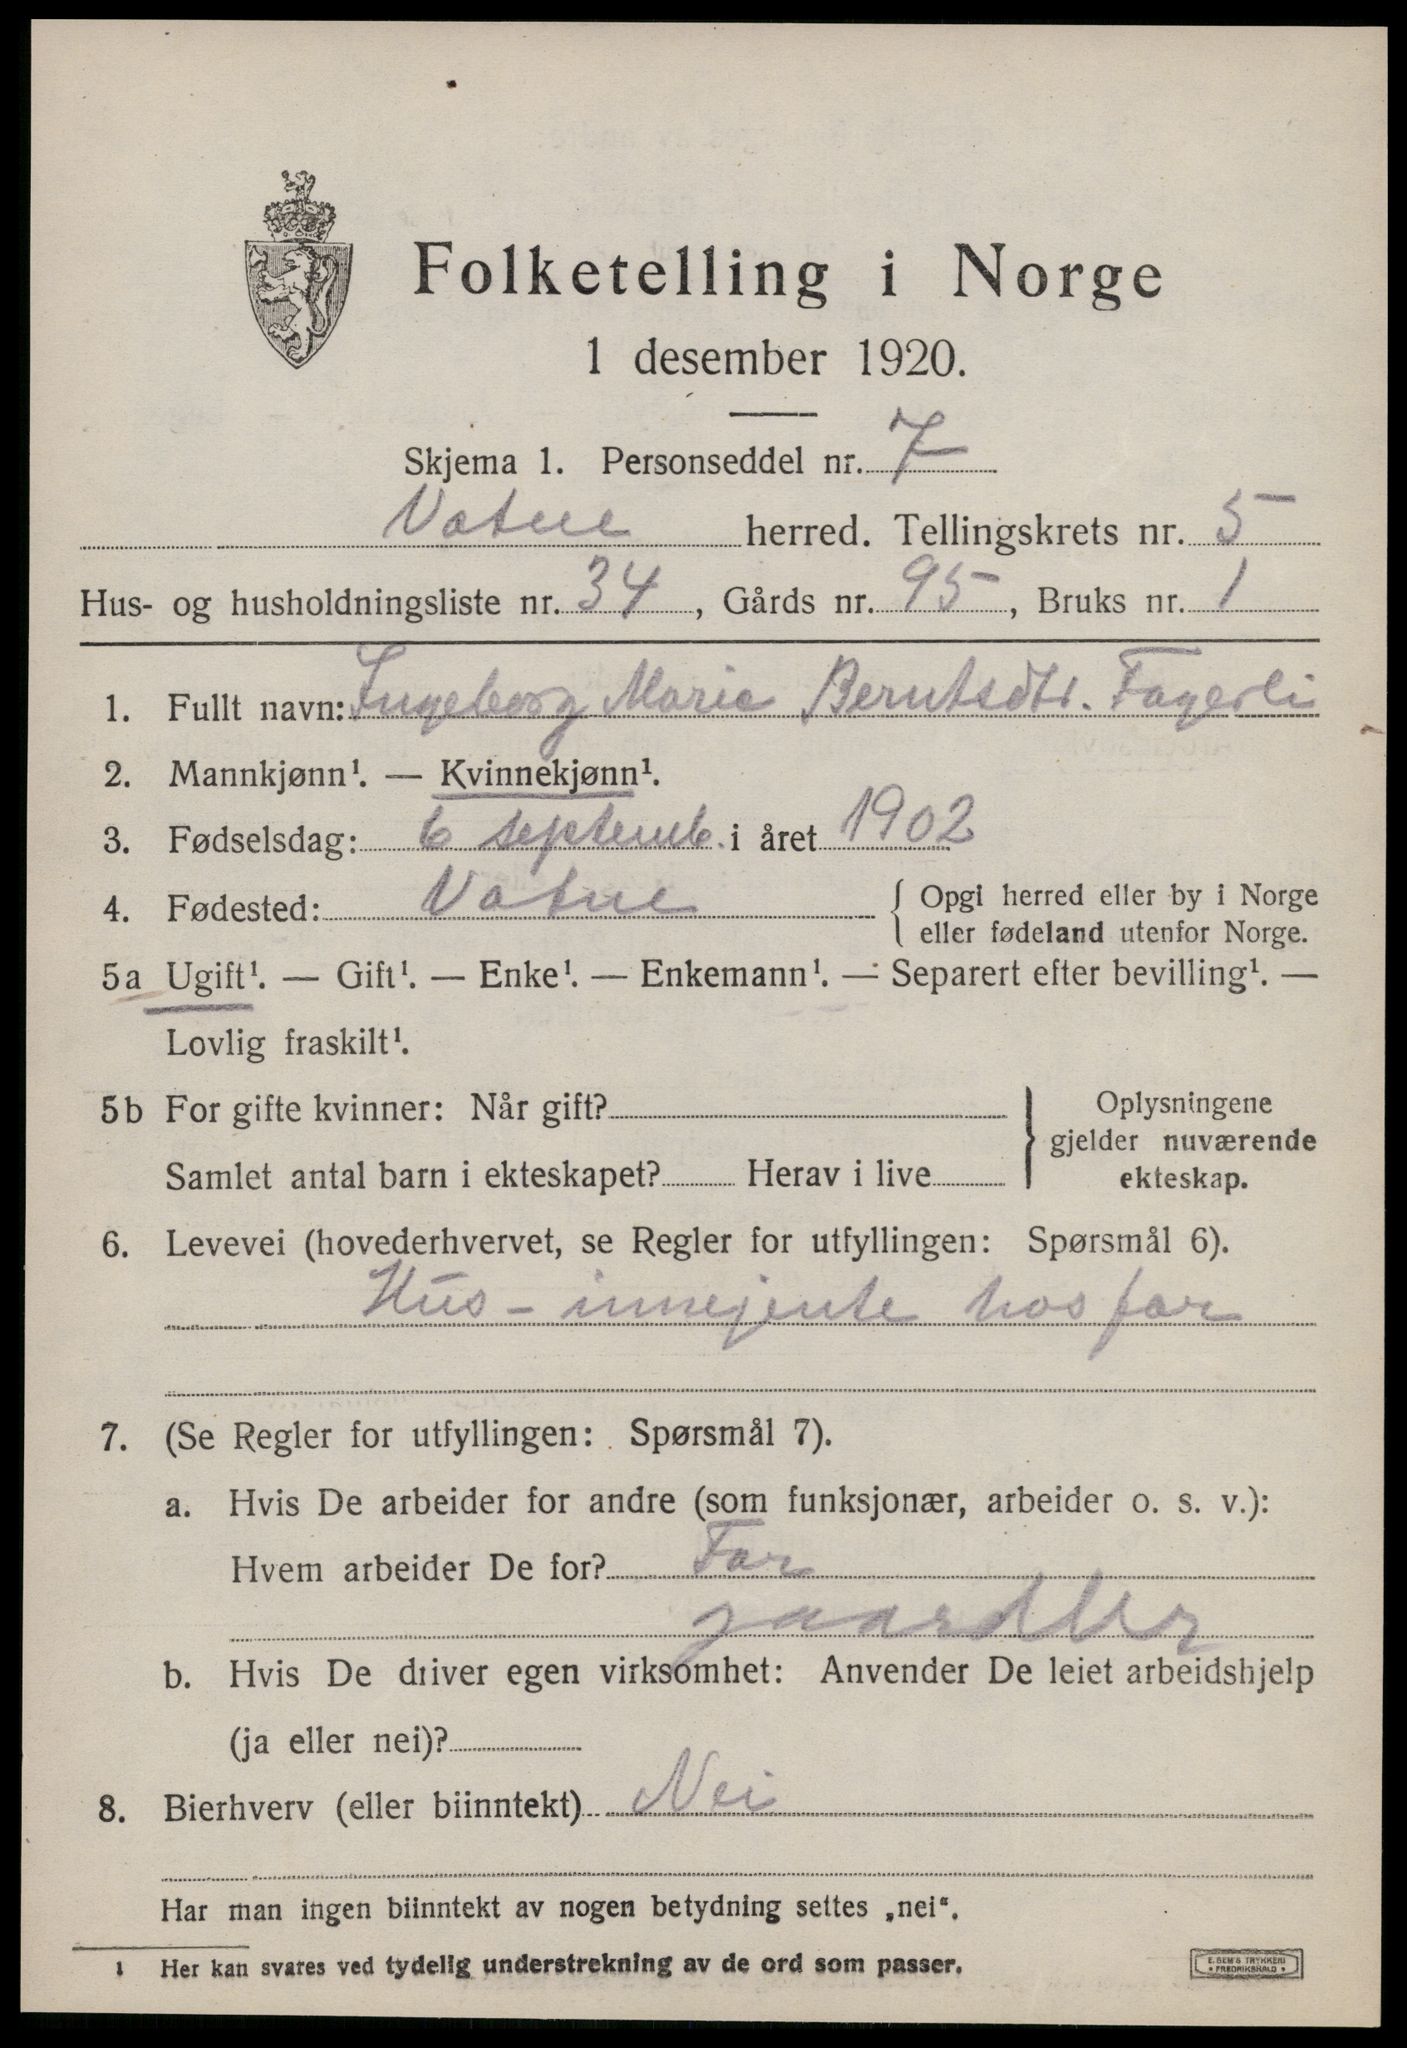 Folketelling i Norge
1 desember 1920.
Skjema 1. Personseddel nr. 7
Vatne herred. Tellingskrets nr. 5
Hus- og husholdningsliste nr. 34, Gårds nr. 95, Bruks nr. 1
1. Fullt navn: Ingeborg Marie Berntsdtr. Fagerli
2. Mannkjønn¹. — Kvinnekjønn¹.
3. Fødselsdag: 6 septemb. i året 1902
4. Fødested: Vatne { Opgi herred eller by i Norge
eller fødeland utenfor Norge.
5a Ugift¹. — Gift¹. — Enke¹. — Enkemann¹. — Separert efter bevilling¹. —
Lovlig fraskilt¹.
5b For gifte kvinner: Når gift? } Oplysningene
gjelder nuværende
Samlet antal barn i ekteskapet? Herav i live ekteskap.
6. Levevei (hovederhvervet, se Regler for utfyllingen: Spørsmål 6).
Hus - innejente hos far
7. (Se Regler for utfyllingen: Spørsmål 7).
a. Hvis De arbeider for andre (som funksjonær, arbeider o. s. v.):
Hvem arbeider De for? Far
b. Hvis De driver egen virksomhet: Anvender De leiet arbeidshjelp
(ja eller nei)?
8. Bierhverv (eller biinntekt) Nei
Har man ingen biinntekt av nogen betydning settes „nei“.
1 Her kan svares ved tydelig understrekning av de ord som passer.
E. SEM'S TRYKKERI
• FREDRIKSHALD •